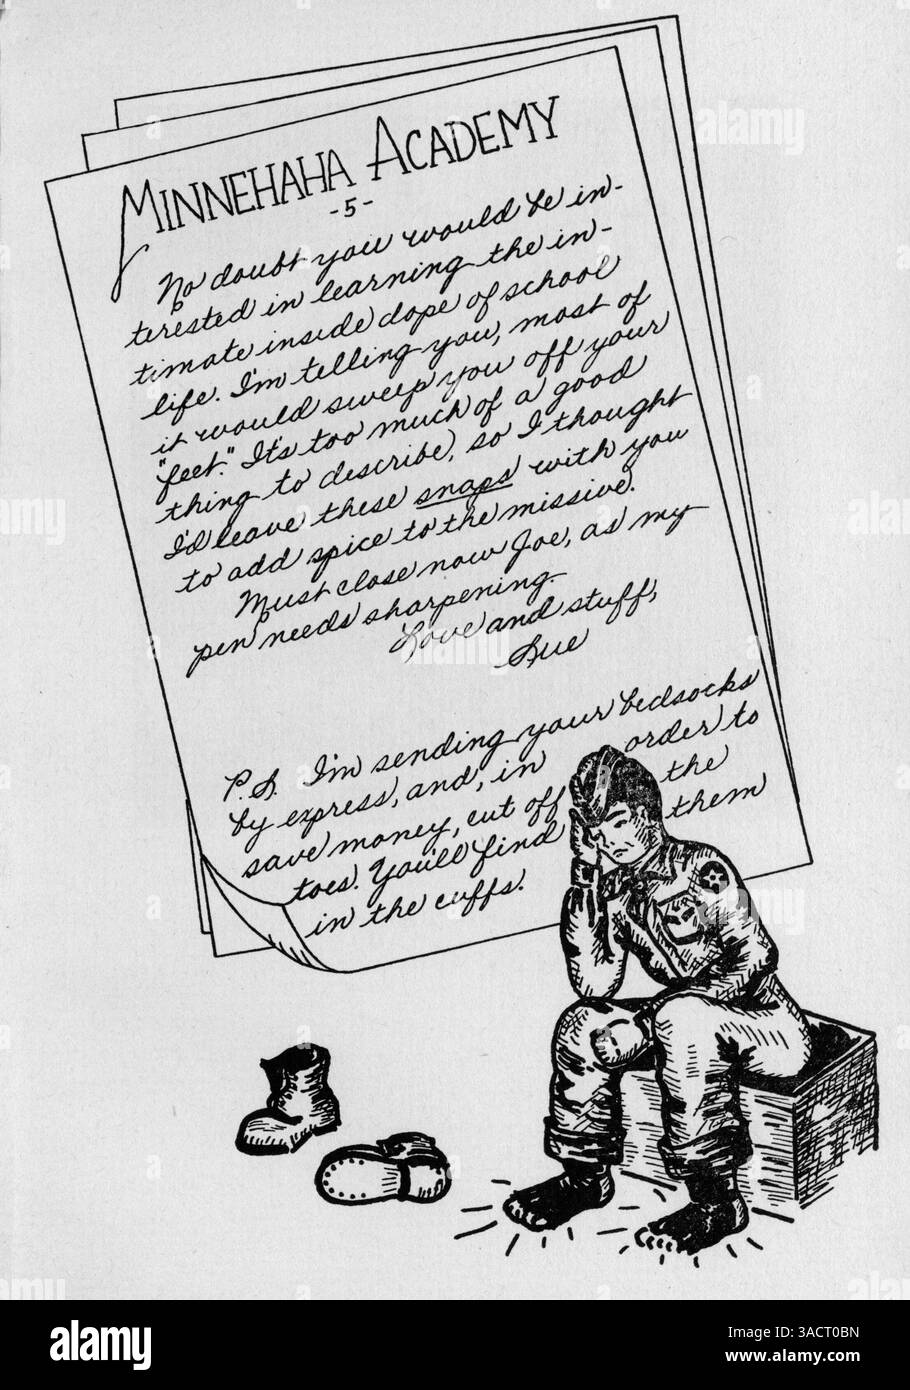 MINNEHAHA ACADEMY
-5-
No doubt you would be in-
terested in learning the in-
timate inside dope of school
life. I'm telling you, most of
it would sweep you off your
"feet." It's too much of a good
thing to describe, so I thought
I'd leave these snaps with you
to add spice to the missive.
Must close now Joe, as my
pen needs sharpening.
Love and stuff,
Sue
P.S. I'm sending your bedsocks
by express, and, in order to
save money, cut off the
toes. You'll find them
in the cuffs.
alamy
Image ID: 3ACT0BN
www.alamy.com